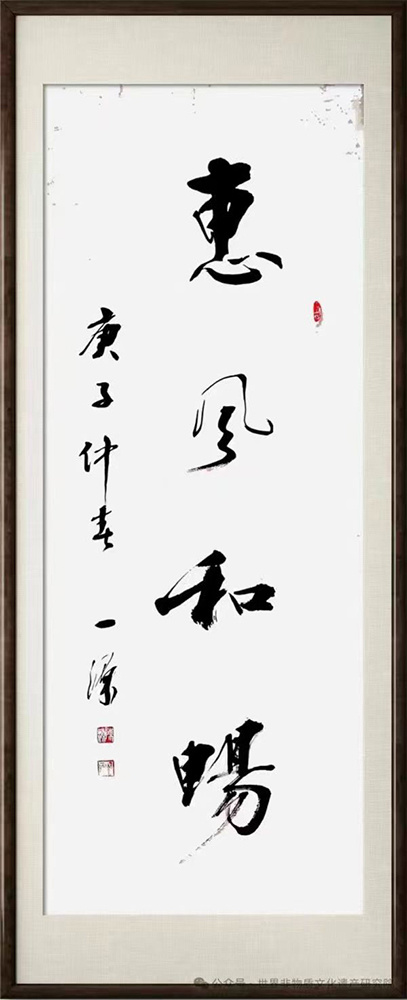 惠风和暢
庚子仲春 一
公众号 · 世界非物质文化遗产研究院